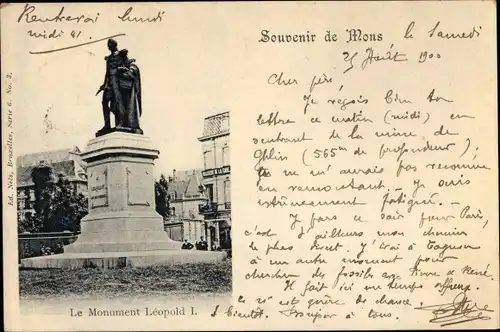 Rentrerai lundi
midi
Souvenir de Mons
le Samedi
25 Août 1900
Cher père,
Je reçois bien ton
lettre ce matin (midi) en
rentrant de la mine de
Ghlin (565m de profondeur).
Tu ne m'aurais pas reconnu
en remontant. - Je suis
extrêmement fatigué. -
Je pars ce soir pour Paris,
c'est d'ailleurs mon chemin
le plus direct. J'irai à
à un autre moment pour
chercher des fossiles avec René.
Il fait ici un temps affreux.
Je n'ai guère de chance.
A bientôt. Bonjour à tous.
Le Monument Léopold I.
Ed. Nels, Bruxelles, Serie 6, No. 3.